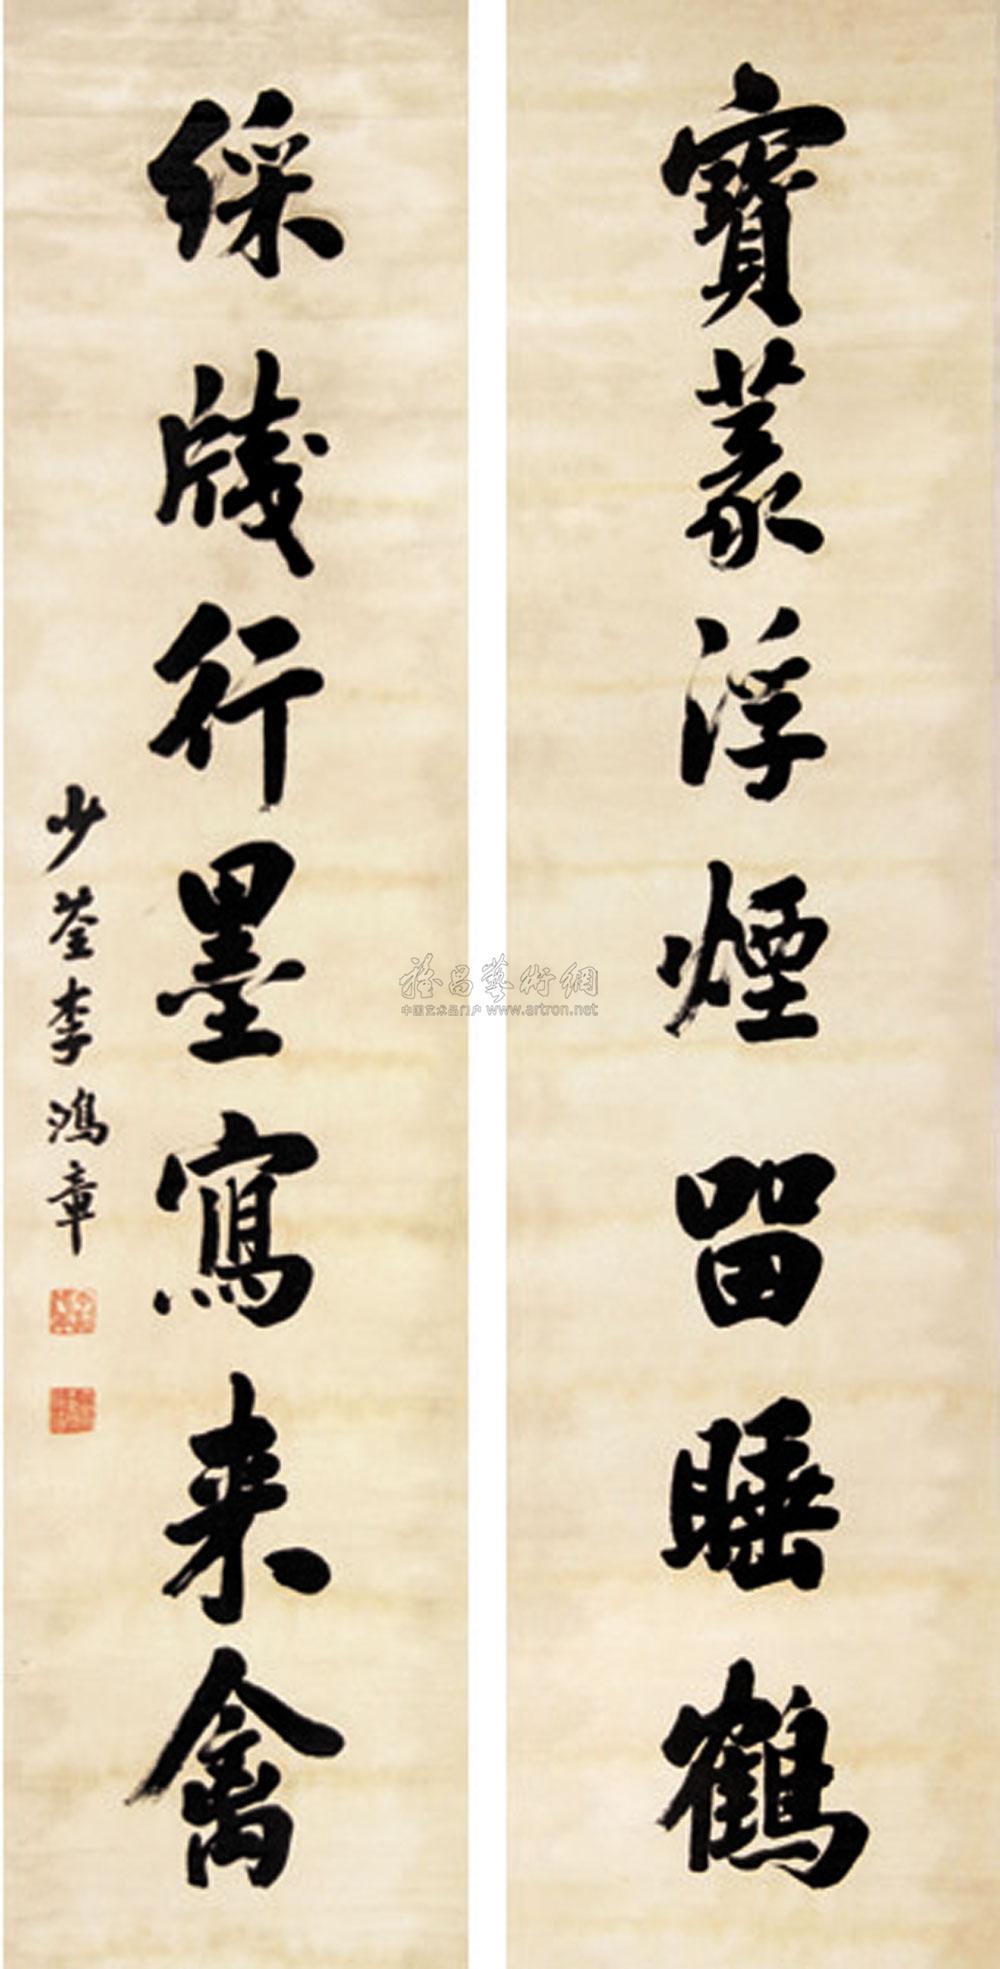 寶篆浮煙留睡鶴
綵牋行墨寫来禽
少荃李鴻章
雅昌藝術網
中国艺术品门户 www.artron.net